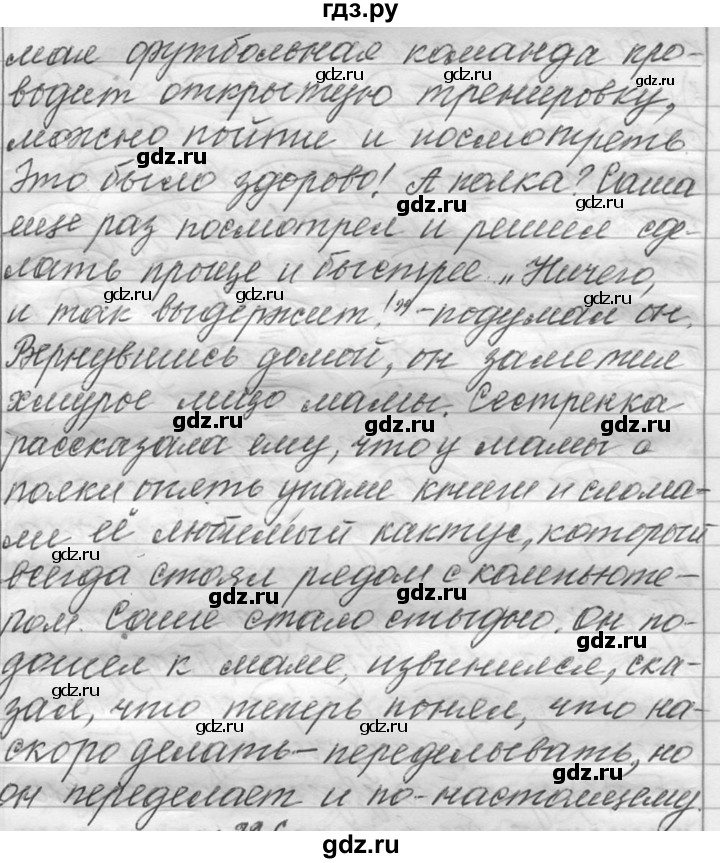 гдз.ру
мая футбольная команда про-
водит открытую тренировку,
можно пойти и посмотреть.
Это было здорово! А полка? Саша
еще раз посмотрел и решил сде-
лать проще и быстрее. „Ничего,
и так выдержит!" - подумал он.
Вернувшись домой, он заметил
хмурое лицо мамы. Сестренка
рассказала ему, что у мамы с
полки опять упали книги и слома-
ли её любимый кактус, который
всегда стоял рядом с компьюте-
ром. Саше стало стыдно. Он по-
дошел к маме, извинился, ска-
зал, что теперь понял, что на-
скоро делать - переделывать, но
он переделает и по-настоящему.
gdz.ru